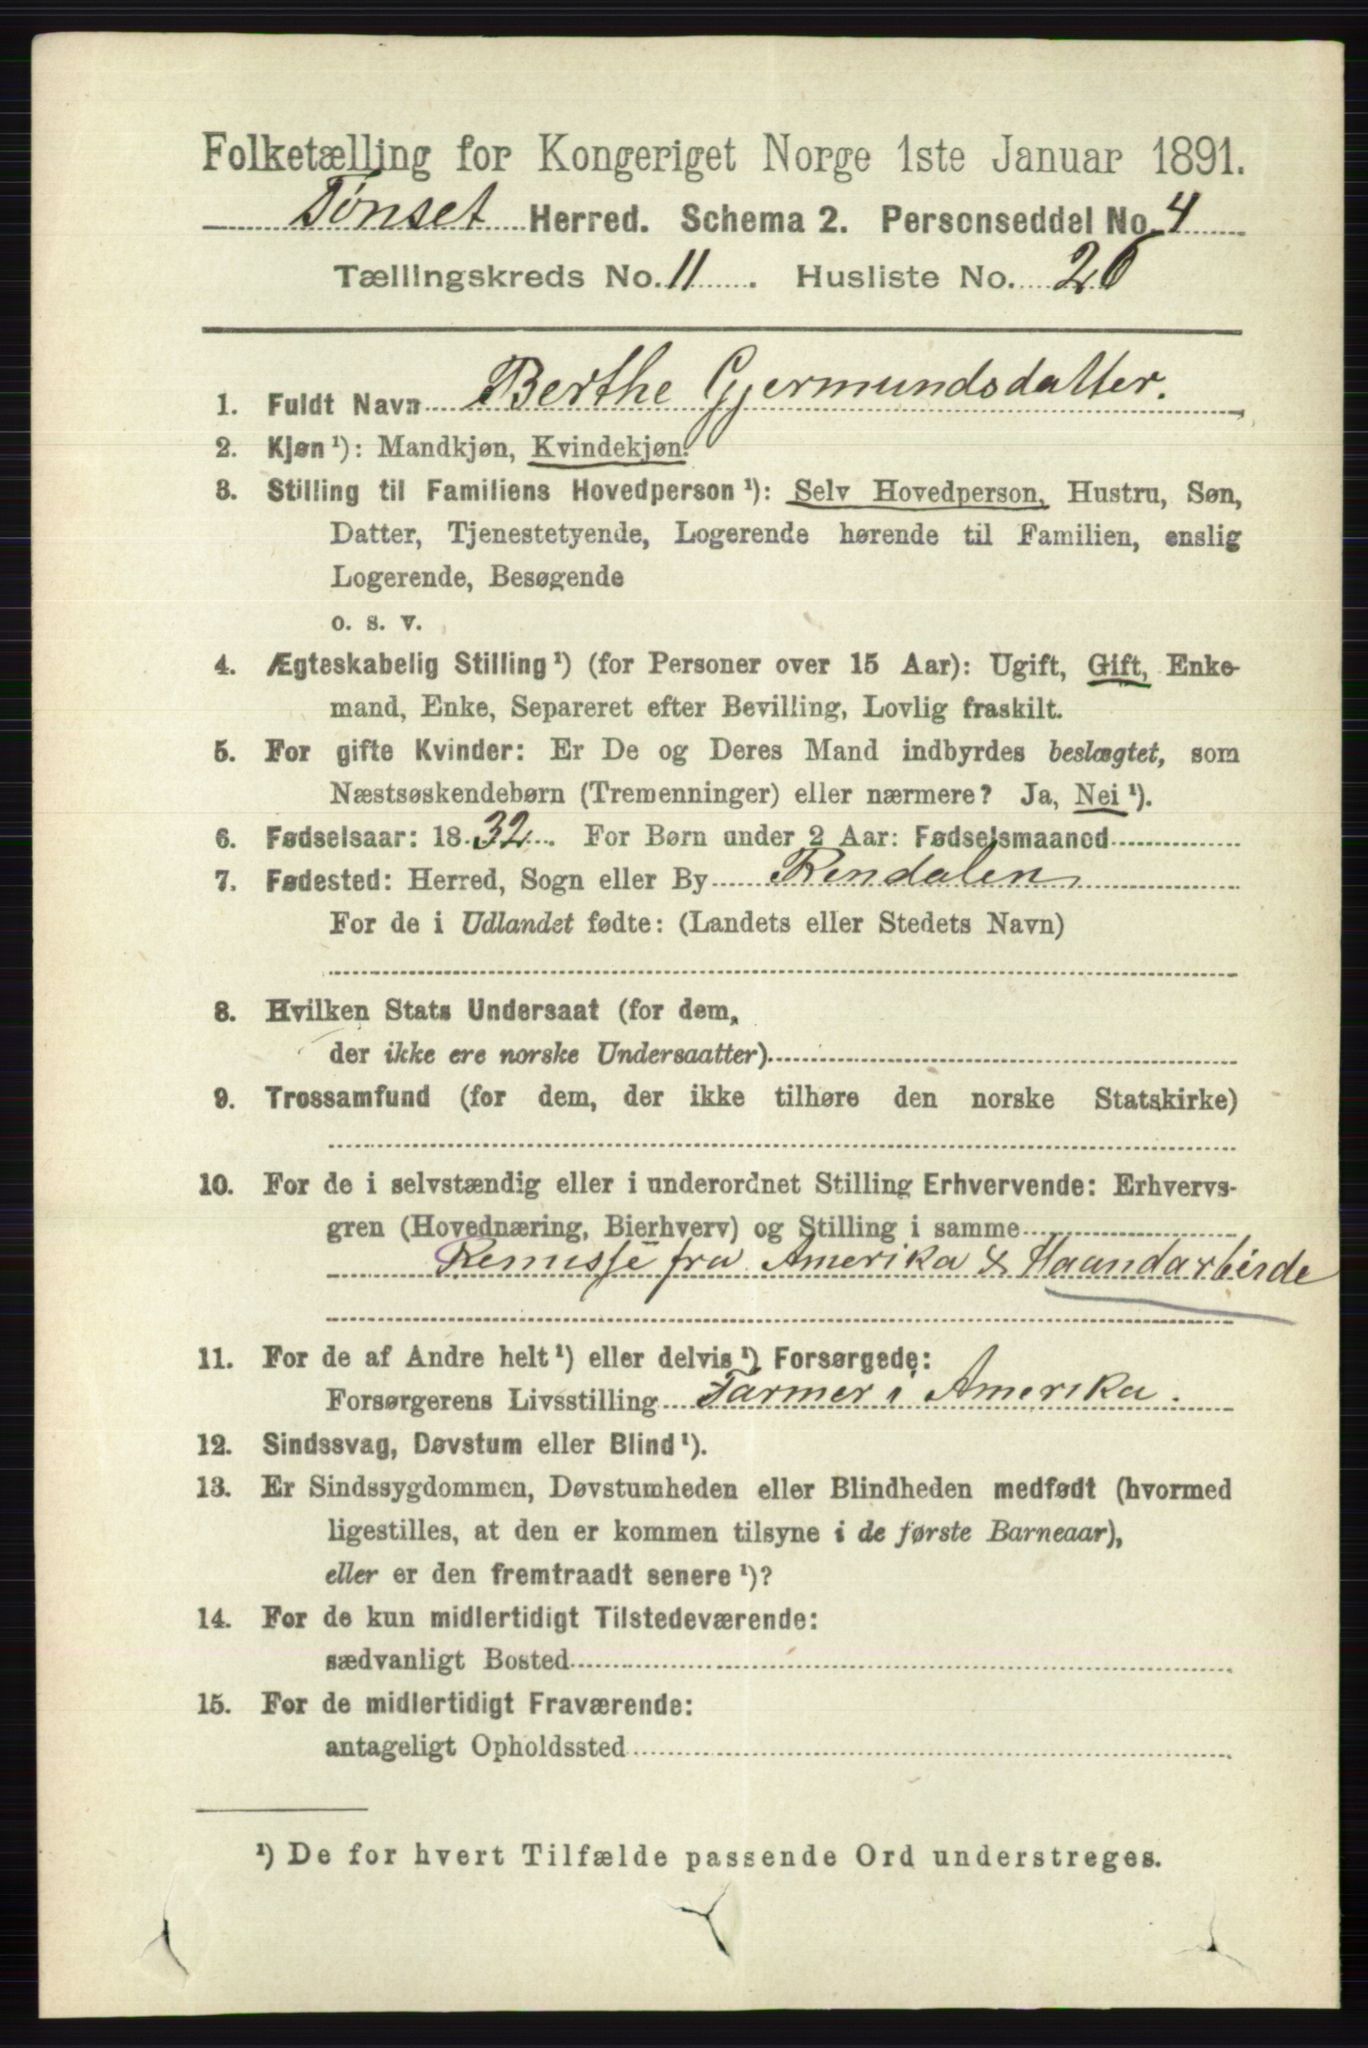 Folketælling for Kongeriget Norge 1ste Januar 1891.
Tønset Herred. Schema 2. Personseddel No. 4
Tællingskreds No. 11. Husliste No. 26
1. Fuldt Navn Berthe Gjermundsdatter.
2. Kjøn ¹): Mandkjøn, Kvindekjøn.
3. Stilling til Familiens Hovedperson ¹): Selv Hovedperson, Hustru, Søn,
Datter, Tjenestetyende, Logerende hørende til Familien, enslig
Logerende, Besøgende
o. s. v.
4. Ægteskabelig Stilling ¹) (for Personer over 15 Aar): Ugift, Gift, Enke-
mand, Enke, Separeret efter Bevilling, Lovlig fraskilt.
5. For gifte Kvinder: Er De og Deres Mand indbyrdes beslægtet, som
Næstsøskendebørn (Tremenninger) eller nærmere? Ja, Nei ¹).
6. Fødselsaar: 1832. For Børn under 2 Aar: Fødselsmaaned
7. Fødested: Herred, Sogn eller By Rendalen
For de i Udlandet fødte: (Landets eller Stedets Navn)
8. Hvilken Stats Undersaat (for dem,
der ikke ere norske Undersaatter)
9. Trossamfund (for dem, der ikke tilhøre den norske Statskirke)
10. For de i selvstændig eller i underordnet Stilling Erhvervende: Erhvervs-
gren (Hovednæring, Bierhverv) og Stilling i samme
Remisse fra Amerika & Haandarbeide
11. For de af Andre helt ¹) eller delvis ¹) Forsørgede:
Forsørgerens Livsstilling Farmer i Amerika.
12. Sindssvag, Døvstum eller Blind ¹).
13. Er Sindssygdommen, Døvstumheden eller Blindheden medfødt (hvormed
ligestilles, at den er kommen tilsyne i de første Barneaar),
eller er den fremtraadt senere ¹)?
14. For de kun midlertidigt Tilstedeværende:
sædvanligt Bosted
15. For de midlertidigt Fraværende:
antageligt Opholdssted
¹) De for hvert Tilfælde passende Ord understreges.